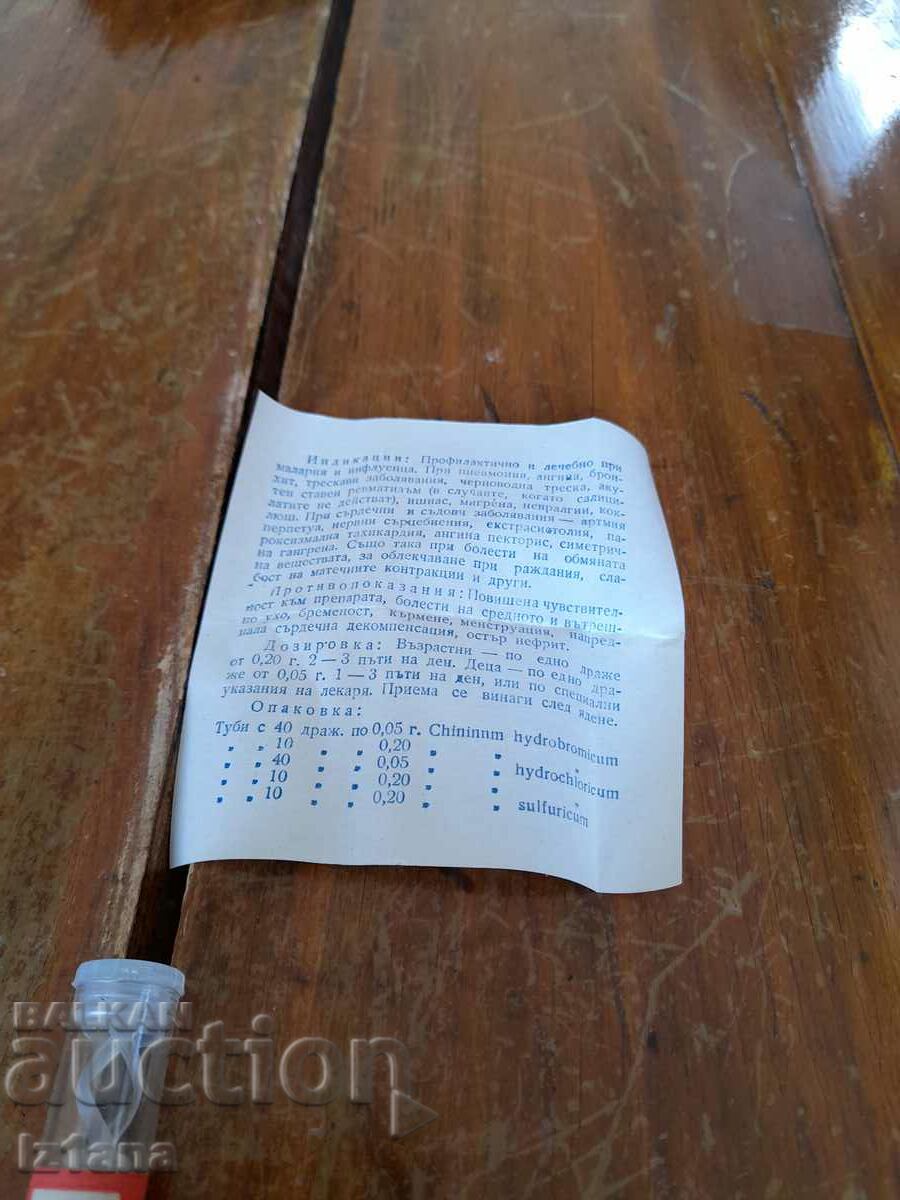 Индикации: Профилактично и лечебно при
малария и инфлуенца. При пневмония, ангина, брон-
хит, трескави заболявания, черноводна треска, аку-
тен ставен ревматизъм (в случаите, когато салици-
латите не действат), ишиас, мигрена, невралгии, кок-
люш. При сърдечни и съдови заболявания — аритмия
перпетуа, нервни сърцебиения, екстрасистолия, па-
роксизмална тахикардия, ангина пекторис, симетрич-
на гангрена. Също така при болести на обмяната
на веществата, за облекчаване при раждания, сла-
бост на маточните контракции и други.
Противопоказания: Повишена чувствител-
ност към препарата, болести на средното и вътреш-
но ухо, бременост, кърмене, менструация, напред-
нала сърдечна декомпенсация, остър нефрит.
Дозировка: Възрастни — по едно драже
от 0,20 г. 2 — 3 пъти на ден. Деца — по едно дра-
же от 0,05 г. 1 — 3 пъти на ден, или по специални
указания на лекаря. Приема се винаги след ядене.
Опаковка:
Туби с 40 драж. по 0,05 г. Chininum hydrobromicum
„ „ 10 „ „ 0,20 „ „ „
„ „ 40 „ „ 0,05 „ „ hydrochloricum
„ „ 10 „ „ 0,20 „ „ „
„ „ 10 „ „ 0,20 „ „ sulfuricum
BALKAN
auction
Iz1ana